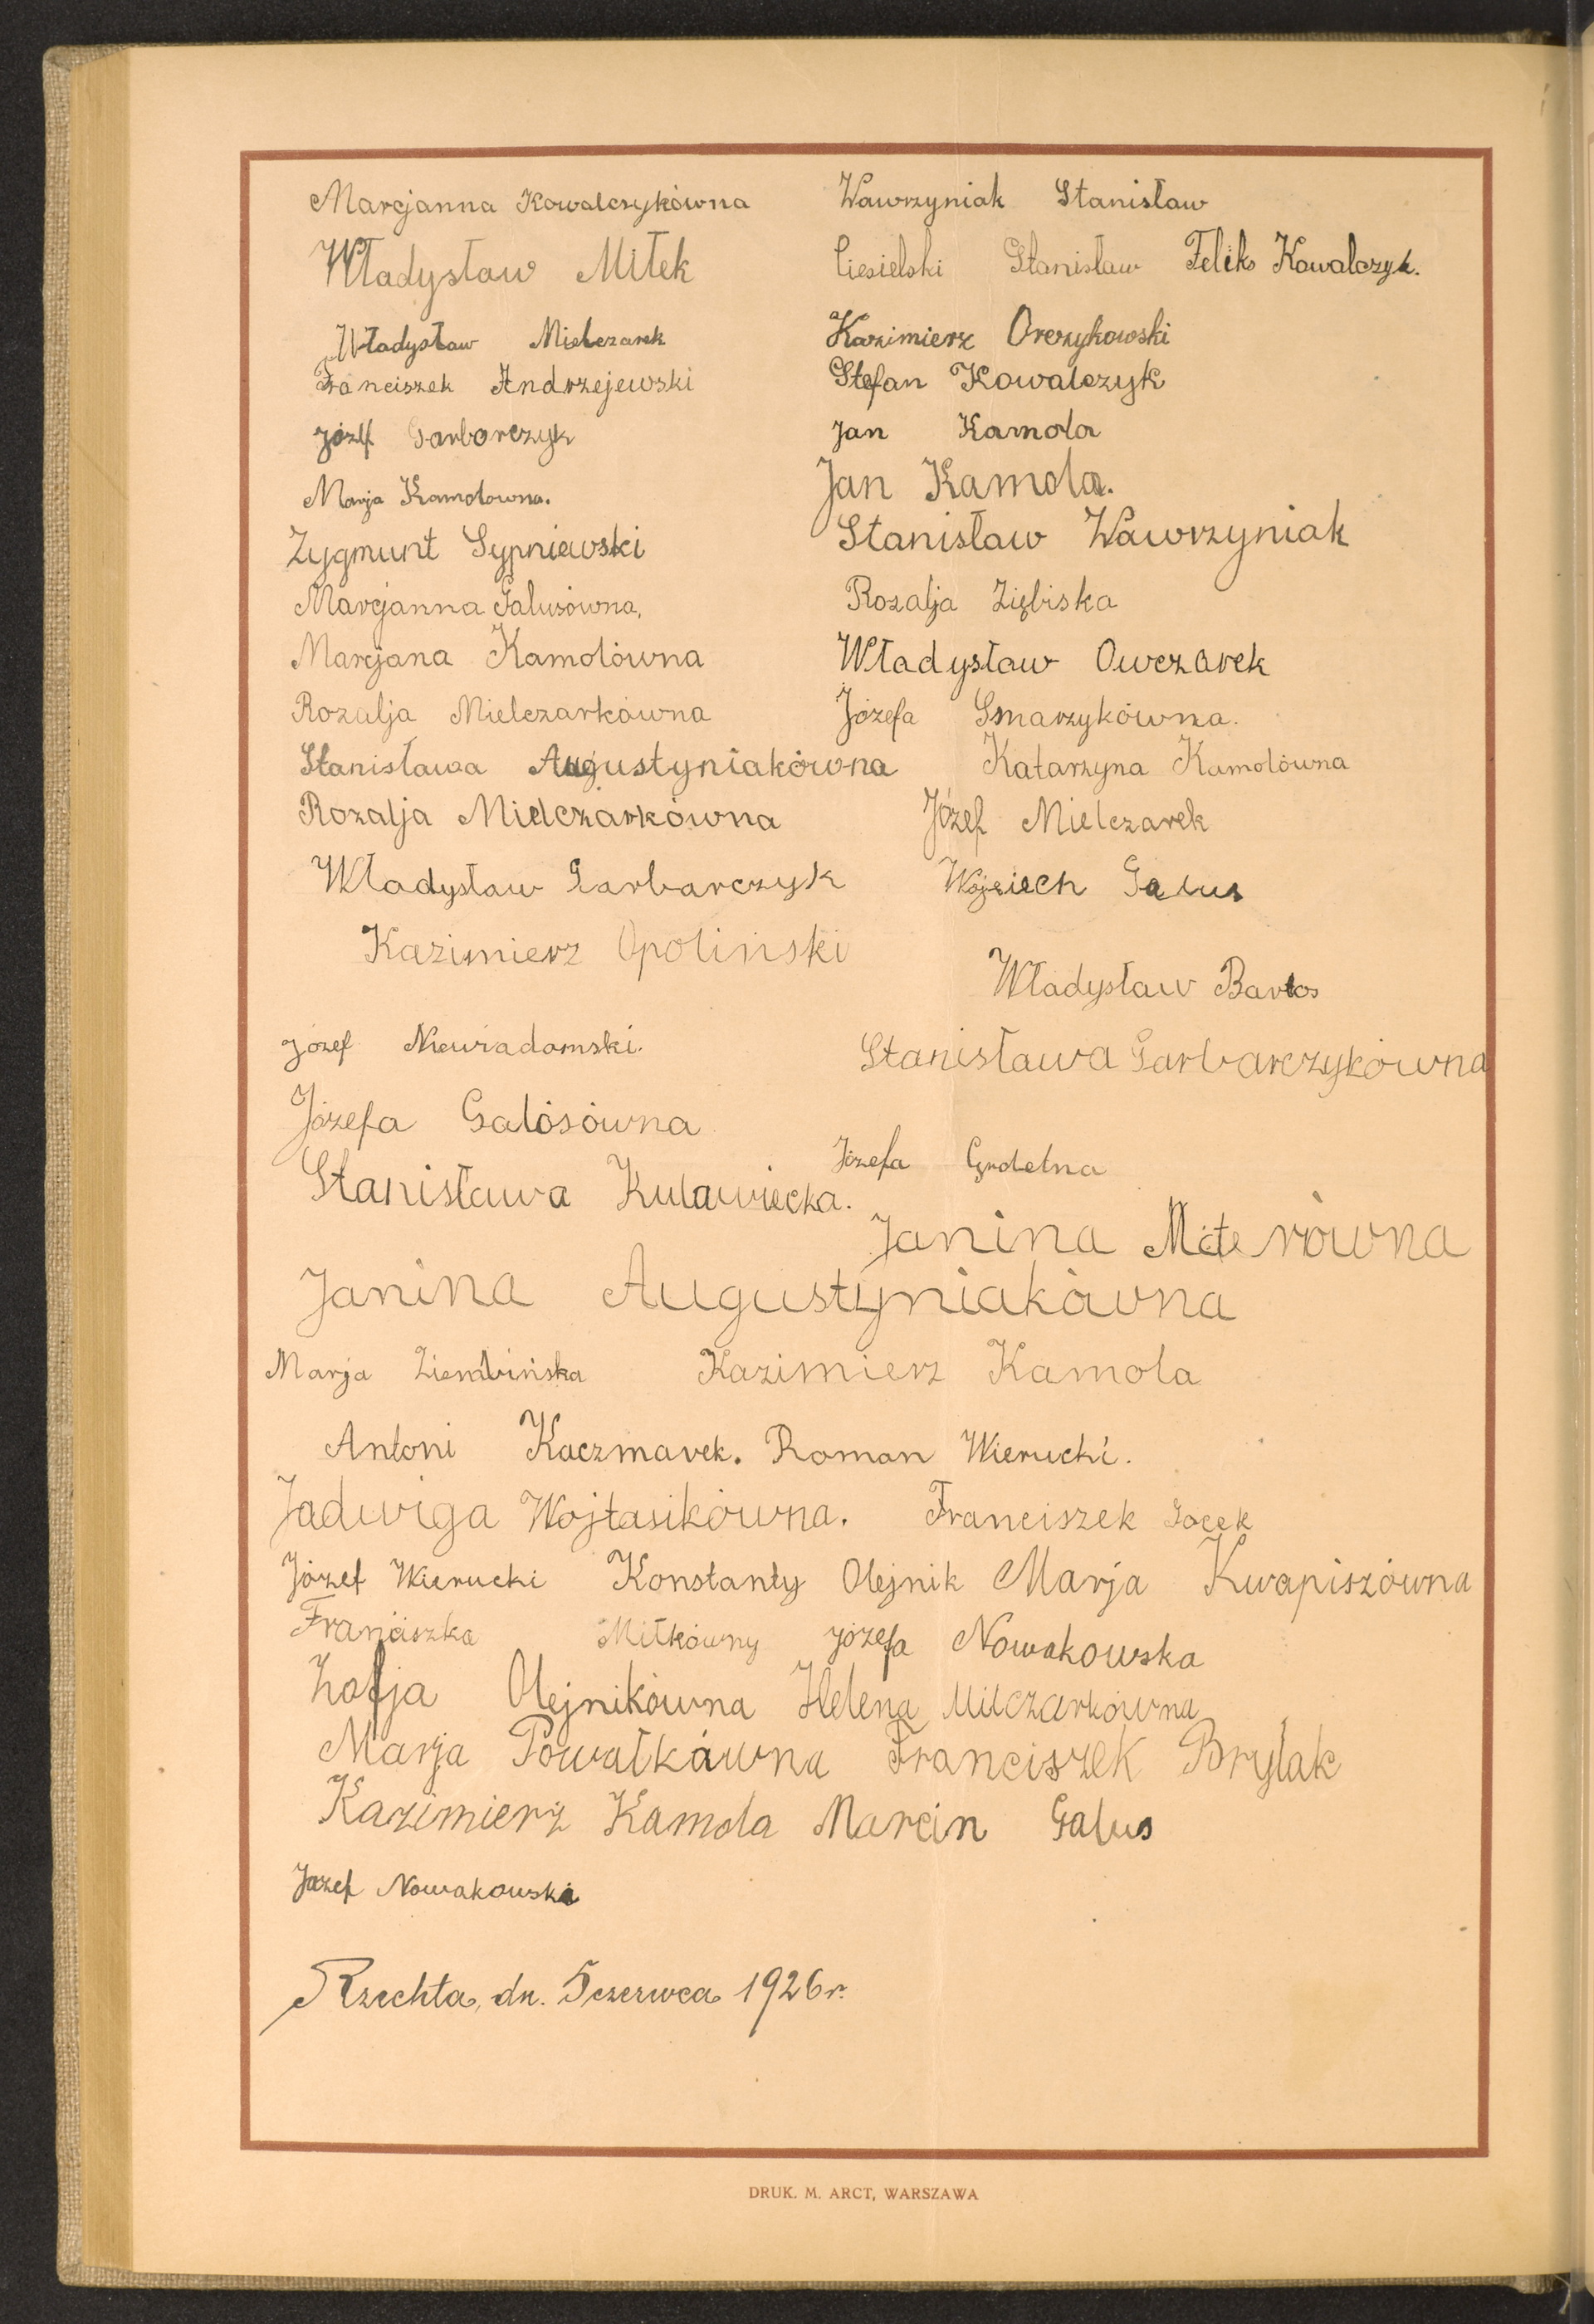 Marcjanna Kowalczykówna Wawrzyniak Stanisław
Władysław Miłek Ciesielski Stanisław Feliks Kowalczyk.
Władysław Mielczarek Kazimierz Orczykowski
Franciszek Andrzejewski Stefan Kowalczyk
Józef Garbarczyk Jan Kamola
Marja Kamolowna. Jan Kamola.
Zygmunt Sypniewski Stanisław Wawrzyniak
Marcjanna Galusówna, Rozalja Ziębiska
Marcjana Kamolówna Władysław Owczarek
Rozalja Mielczarkówna Józefa Smarzykówna.
Stanisława Augustyniakówna Katarzyna Kamolówna
Rozalja Mielczarkówna Józef Mielczarek
Władysław Garbarczyk Wojciech Galus
Kazimierz Opoliński
Władysław Bartos
Józef Niewiadomski. Stanisława Garbarczykówna
Józefa Galósówna
Józefa Grdelna
Stanisława Kulawiecka.
Janina Miterówna
Janina Augustyniakówna
Marja Ziembińska Kazimierz Kamola
Antoni Kaczmarek. Roman Wierucki.
Jadwiga Wojtasikówna. Franciszek Jocek
Józef Wierucki Konstanty Olejnik Marja Kwapiszówna
Franciszka Miłkówny Józefa Nowakowska
Zofja Olejnikówna Helena Milczarkówna
Marja Powałkówna Franciszek Brylak
Kazimierz Kamola Marcin Galus
Józef Nowakowski
Rzechta, dn. 5 czerwca 1926 r.
DRUK. M. ARCT, WARSZAWA